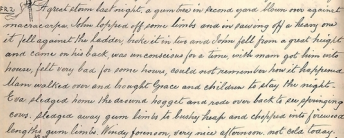 FR 2 A great storm last night, a gum tree in second yard blown over against
macrocarpa. John lopped off some limbs and in sawing off a heavy one
it fell against the ladder, broke it in two and John fell from a great height
and came on his back, was unconscious for a time, with mam got him into
house, felt very bad for some hours, could not remember how it happened
Mam walked over and brought Grace and children to stay the night.
Eva pledged home the hogget and rode over back to see springing
cows. pledged away gum limbs to bushy heap and chopped into firewood
lengths gum limbs. Windy forenoon, very nice afternoon, not cold today.